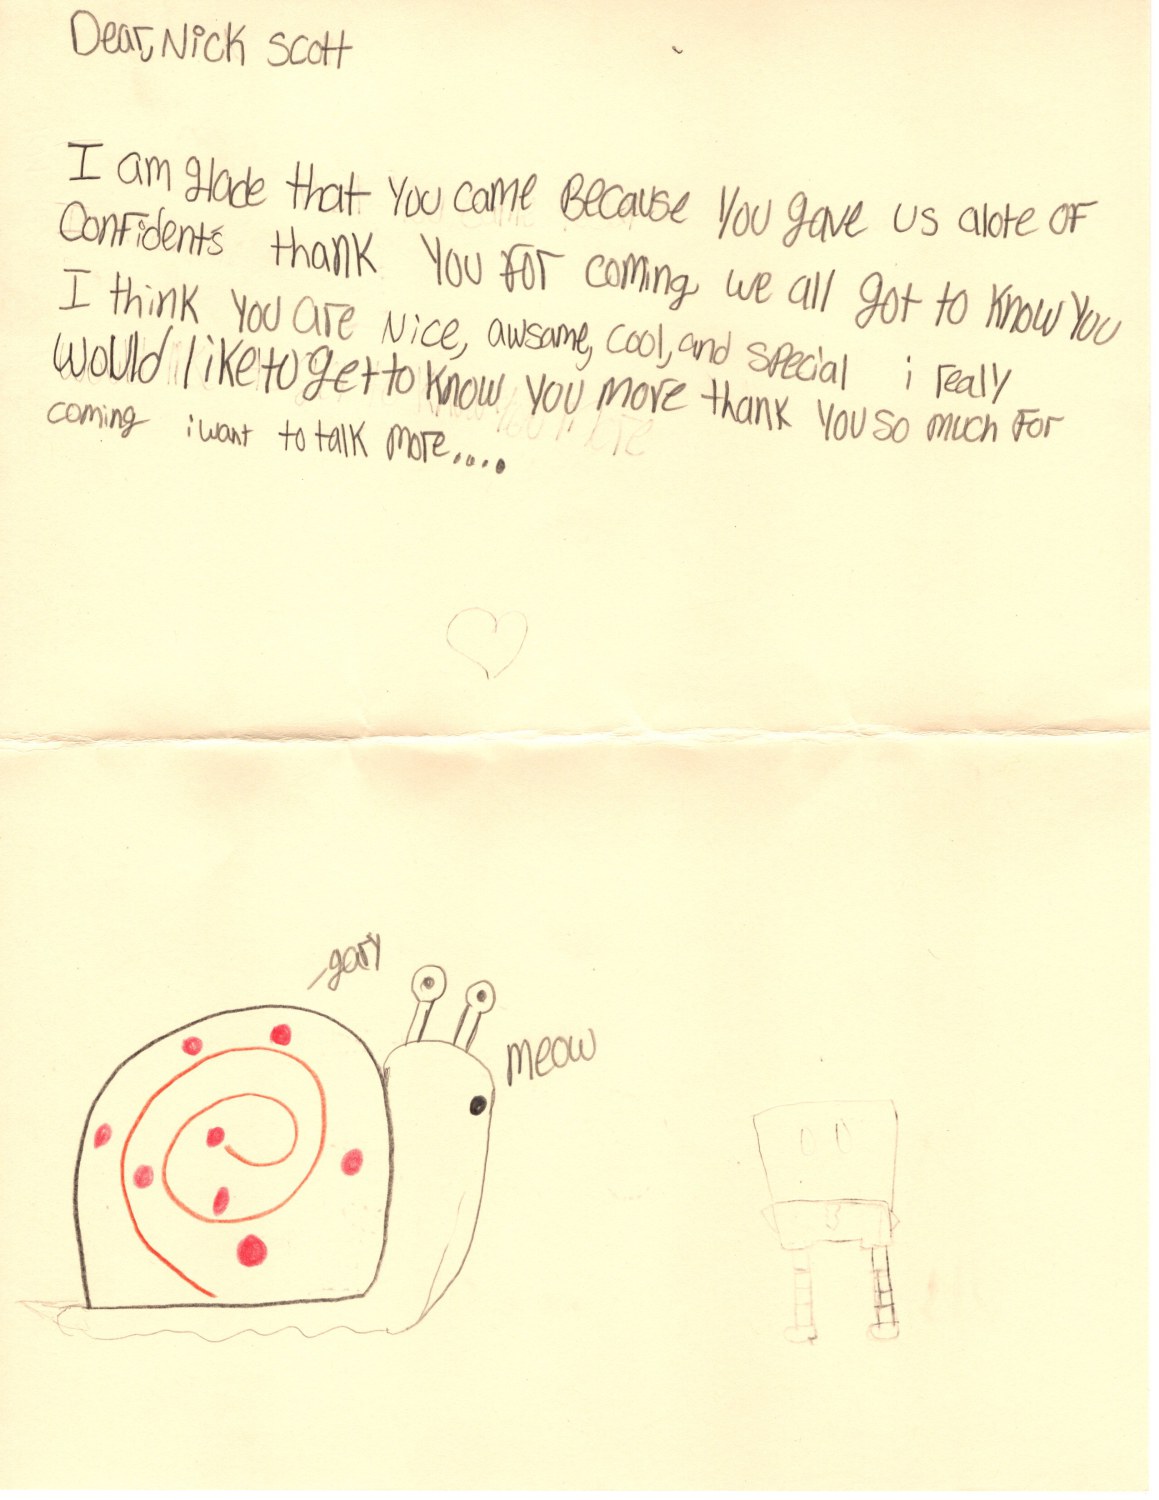 Dear, Nick Scott
I am glade that you came Because you gave us alote of
Confidents thank you for coming we all got to know you
I think you are Nice, awsame, cool, and special i realy
would like to get to know you more thank you so much for
coming i want to talk more....
gary
meow